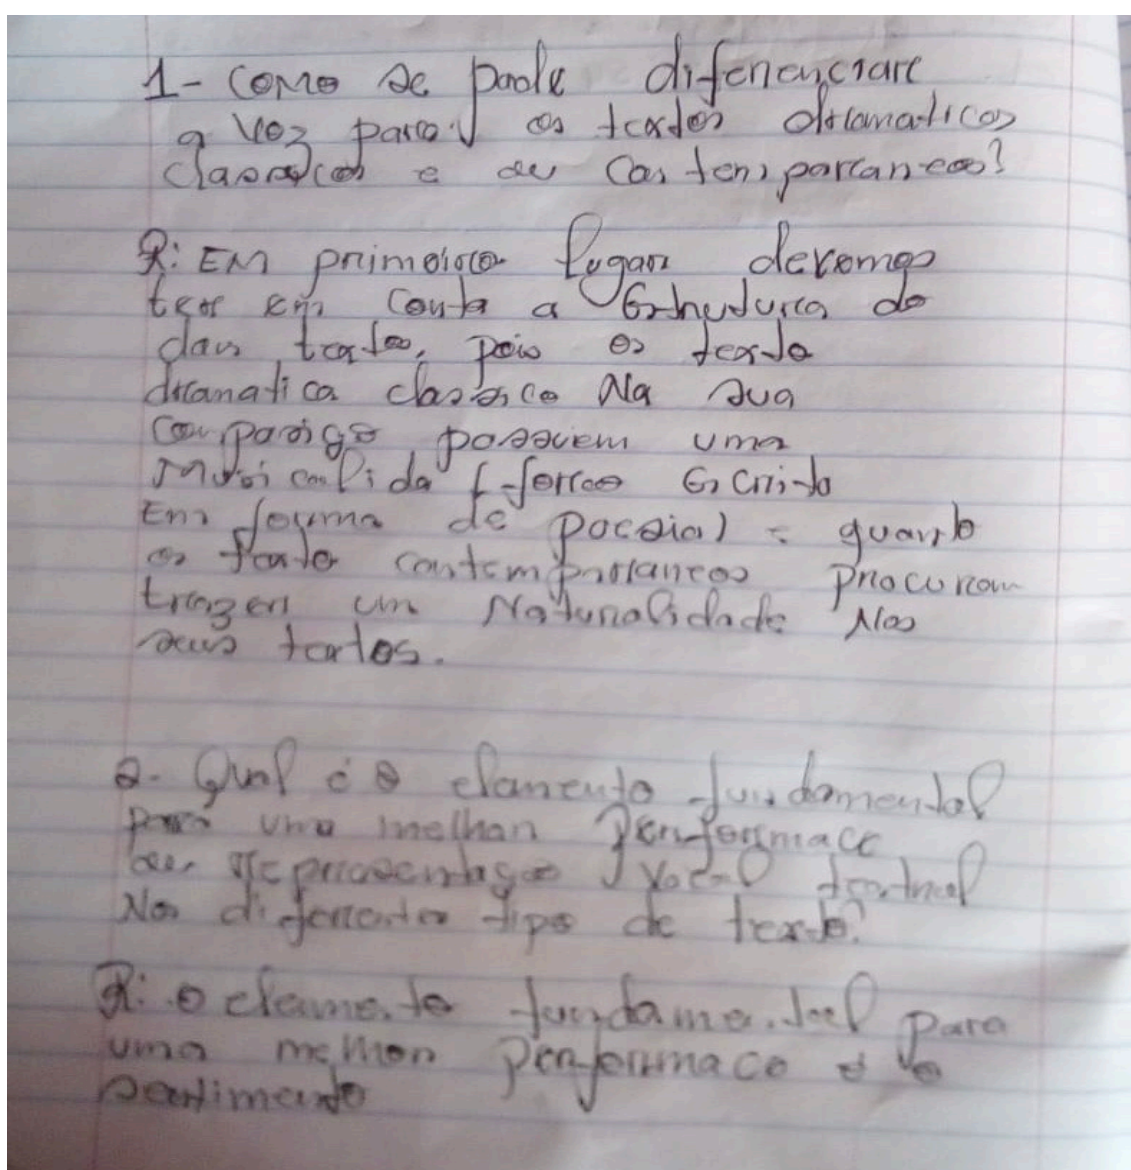 1- Como se pode diferenciare
a voz para os textos dramaticos
classicos e contemporaneos?
R: Em primeiro lugar devemos
ter em conta a Estrutura do
texto, pois os texto
dramatica classico Na sua
composição possuem uma
Musicalida (-ferso Escrito
Em forma de poesia) = quanto
os texto contemporaneos procuram
trazer um Naturalidade Nos
seus textos.
2- Qual é o elemento fundamental
para uma melhor Performace
representação vocal textual
Nos diferentes tipo de texto?
R: o elemento fundamental para
uma melhor performace é o
sentimento